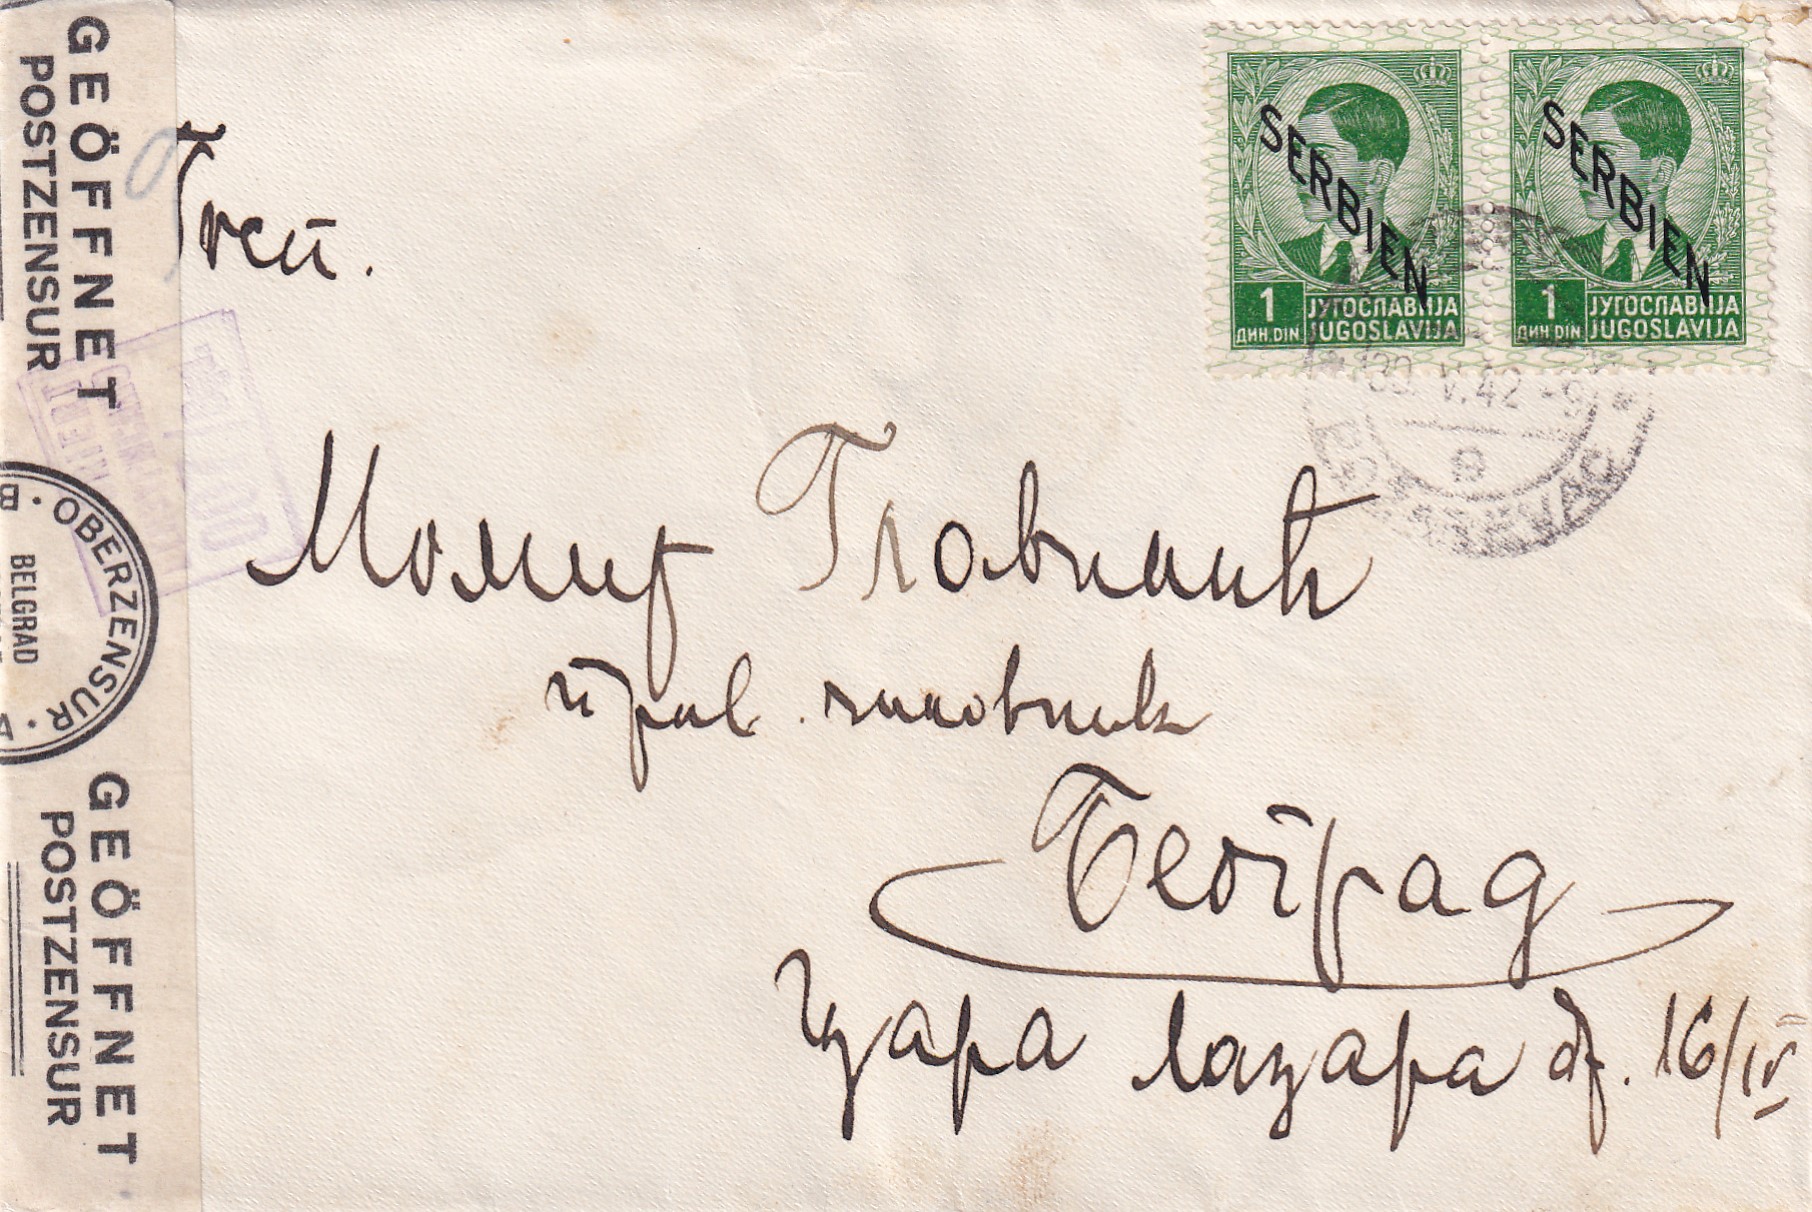 GEÖFFNET
POSTZENSUR
OBERZENSUR
BELGRAD
GEÖFFNET
POSTZENSUR
SERBIEN
1
ДИН. DIN
ЈУГОСЛАВИЈА
JUGOSLAVIJA
SERBIEN
1
ДИН. DIN
ЈУГОСЛАВИЈА
JUGOSLAVIJA
V.42
Момир
прив. чиновник
Београд
Цара Лазара бр. 16/IV